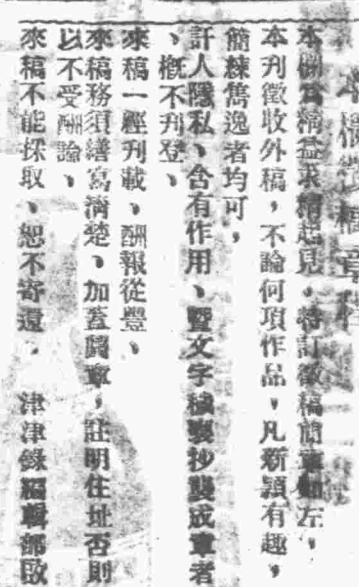 本欄徵稿章程
本欄為精益求精起見，特訂徵稿簡章如左，
本刊徵收外稿，不論何項作品，凡新穎有趣，
簡練雋逸者均可，
訐人隱私、含有作用、暨文字穢褻抄襲成章者
、概不刋登、
來稿一經刋載、酬報從豐、
來稿務須繕寫清楚、加蓋圖章，註明住址否則
以不受酬論、
來稿不能採取、恕不寄還、津津錄編輯部啟